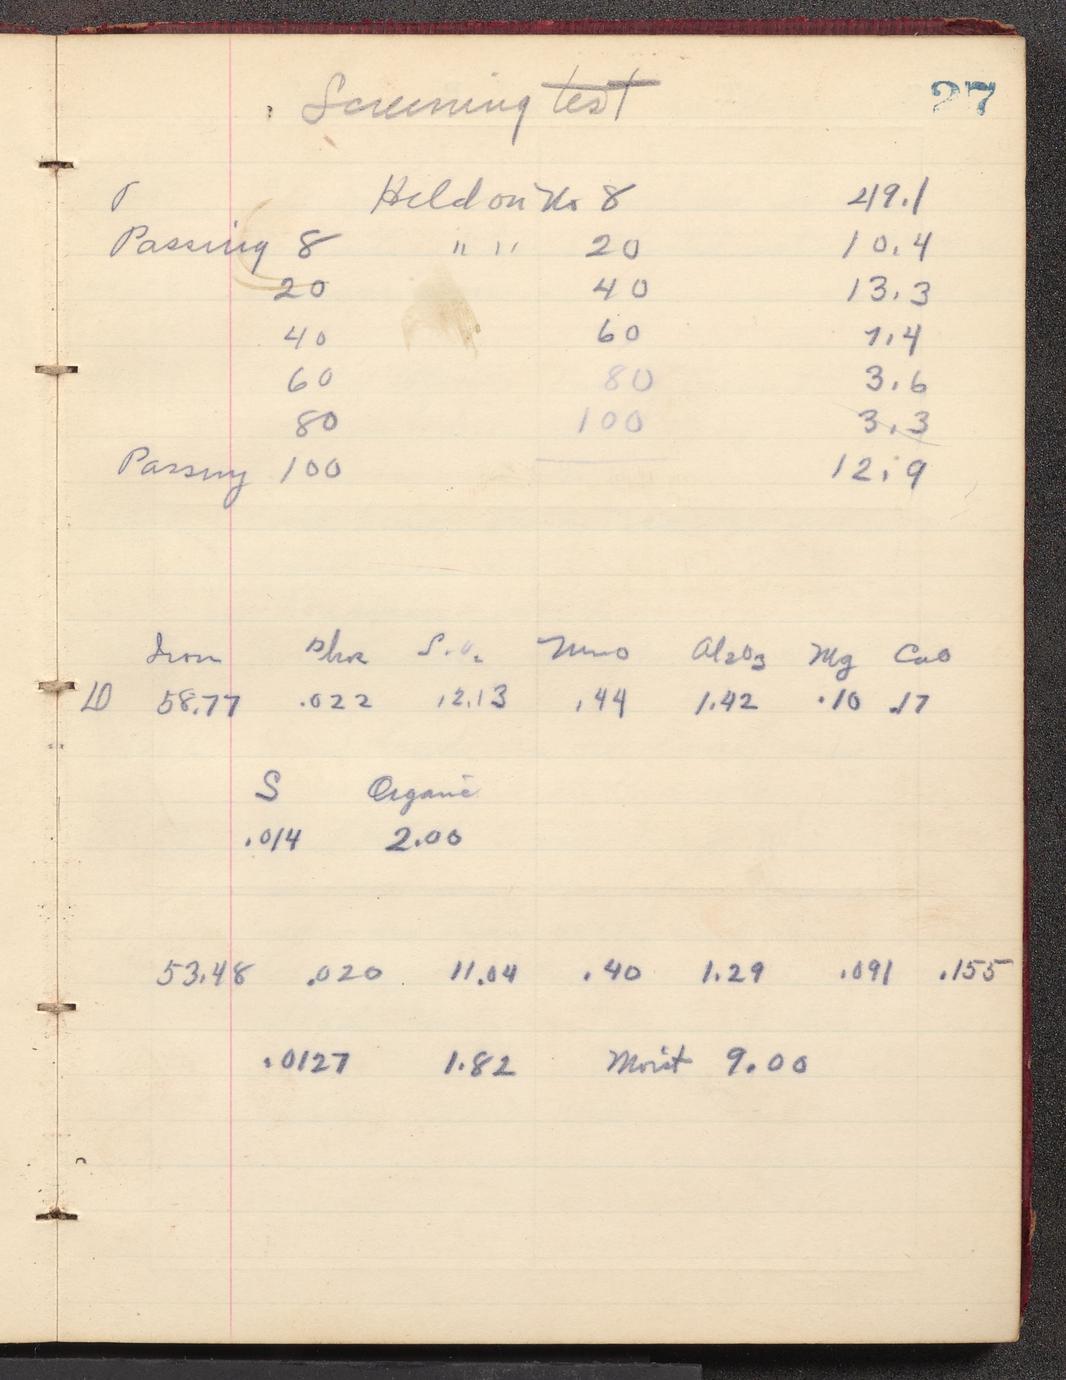 Screening test 27
Held on No 8 49.1
Passing 8 " " 20 10.4
20 40 13.3
40 60 7.4
60 80 3.6
80 100 3.3
Passing 100 12.9
Iron Phos SiO2 Mno Al2O3 Mg CaO
58.77 .022 12.13 .44 1.42 .10 .17
S Organic
.014 2.00
53.48 .020 11.04 .40 1.29 .091 .155
.0127 1.82 Moist 9.00